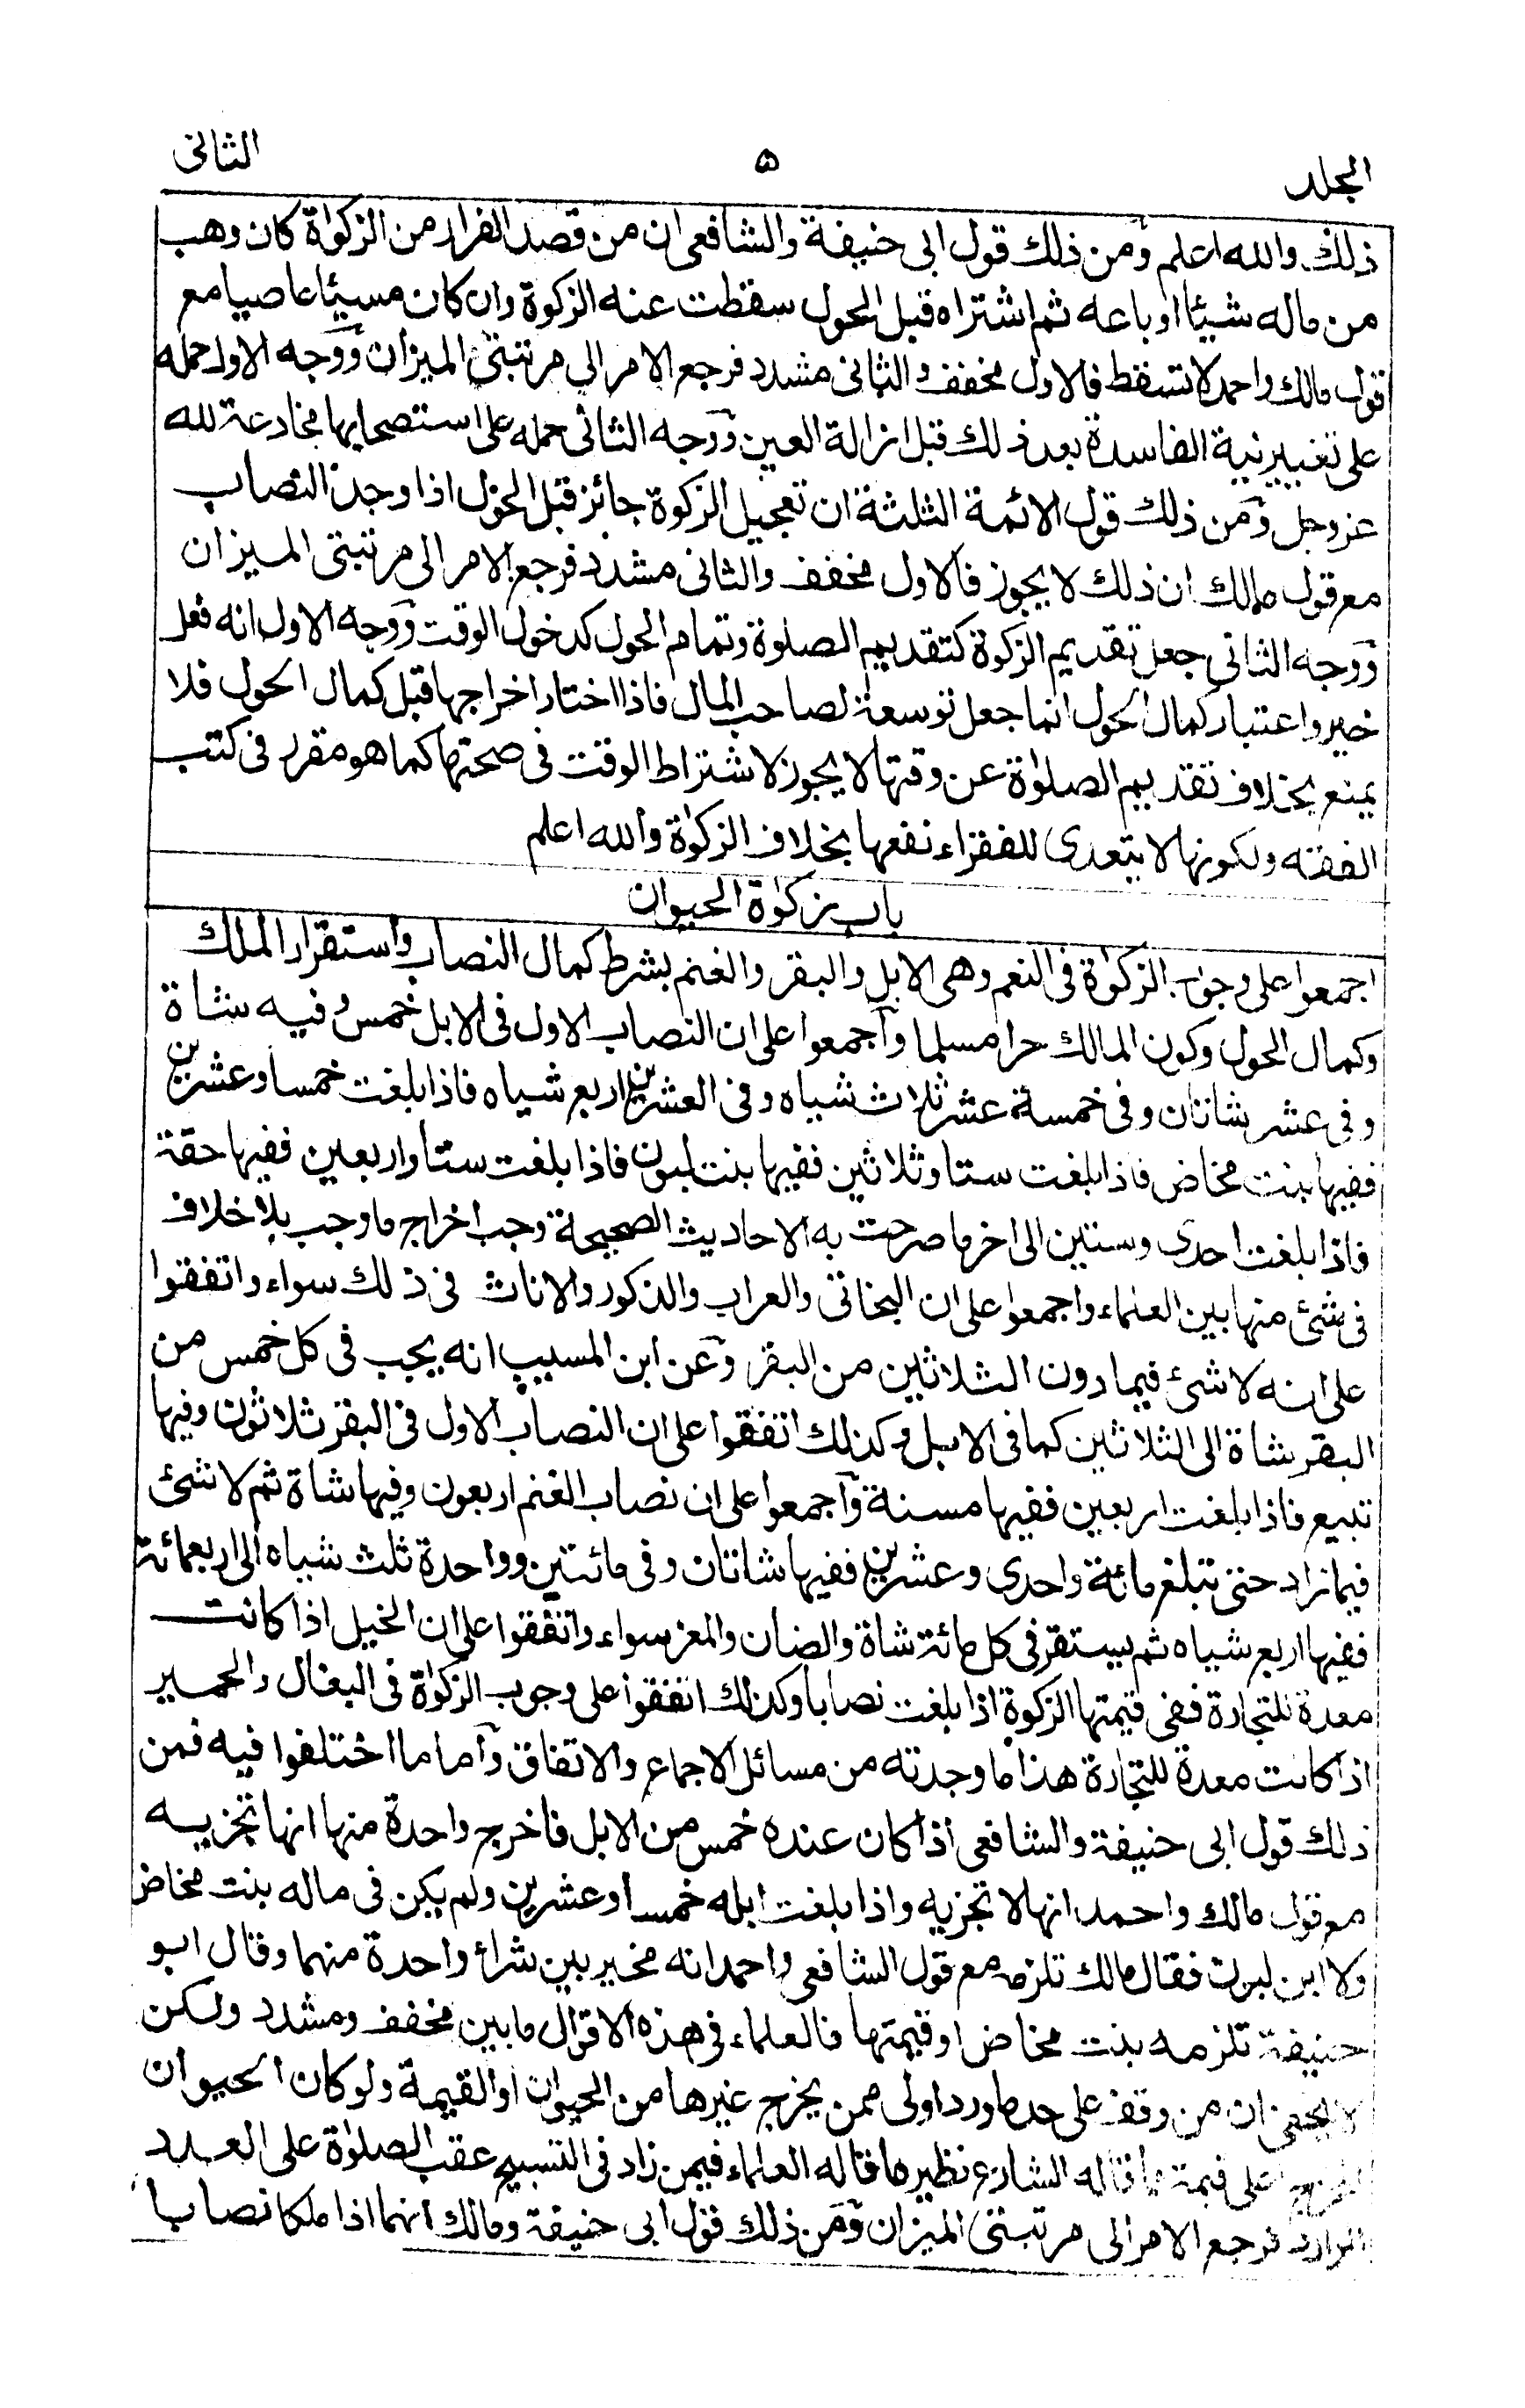 المجلد ۵ الثانى
ذلك والله اعلم ومن ذلك قول ابى حنيفة والشافعى ان من قصد الفرار من الزكوٰة كان وهب
من ماله شيئا او باعه ثم اشتراه قبل الحول سقطت عنه الزكوة وان كان مسيئا عاصيا مع
قول مالك واحمد لا تسقط فالاول مخفف والثانى مشدد فرجع الامر الى مرتبتى الميزان ووجه الاول حمله
على تغيير نية الفاسدة بعد ذلك قبل ازالة العين ووجه الثانى حمله على استصحابها مخادعة لله
عز وجل ومن ذلك قول الائمة الثلثة ان تعجيل الزكوة جائز قبل الحول اذا وجد النصاب
مع قول مالك ان ذلك لا يجوز فالاول مخفف والثانى مشدد فرجع الامر الى مرتبتى الميزان
ووجه الثانى جعل تقديم الزكوة كتقديم الصلوة وتمام الحول كدخول الوقت ووجه الاول انه فعل
خير واعتبار كمال الحول انما جعل توسعة لصاحب المال فاذا اختار اخراجها قبل كمال الحول فلا
يمنع بخلاف تقديم الصلوٰة عن وقتها لا يجوز لاشتراط الوقت فى صحتها كما هو مقرر فى كتب
الفقه ولكونها لا يتعدى للفقراء نفعها بخلاف الزكوٰة والله اعلم
باب زكوٰة الحيوان
اجمعوا على وجوب الزكوٰة فى النعم وهى الابل والبقر والغنم بشرط كمال النصاب واستقرار الملك
وكمال الحول وكون المالك حرا مسلما واجمعوا على ان النصاب الاول فى الابل خمس وفيه شاة
وفى عشر شاتان وفى خمسة عشر ثلاث شياه وفى العشرين اربع شياه فاذا بلغت خمسا وعشرين
ففيها بنت مخاض فاذا بلغت ستا وثلاثين ففيها بنت لبون فاذا بلغت ستا واربعين ففيها حقة
فاذا بلغت احدى وستين الى اخر ما صرحت به الاحاديث الصحيحة وجب اخراج ما وجب بلا خلاف
فى شئ منها بين العلماء واجمعوا على ان البخاتى والعراب والذكور والاناث فى ذلك سواء واتفقوا
على انه لا شئ فيما دون الثلاثين من البقر وعن ابن المسيب انه يجب فى كل خمس من
البقر شاة الى الثلاثين كما فى الابل وكذلك اتفقوا على ان النصاب الاول فى البقر ثلاثون وفيها
تبيع فاذا بلغت اربعين ففيها مسنة واجمعوا على ان نصاب الغنم اربعون وفيها شاة ثم لا شئ
فيما زاد حتى تبلغ مائة واحدى وعشرين ففيها شاتان وفى مائتين وواحدة ثلث شياه الى اربعمائة
ففيها اربع شياه ثم يستقر فى كل مائة شاة والضان والمعز سواء واتفقوا على ان الخيل اذا كانت
معدة للتجارة ففى قيمتها الزكوة اذا بلغت نصابا وكذلك اتفقوا على وجوب الزكوٰة فى البغال والحمير
اذا كانت معدة للتجارة هذا ما وجدته من مسائل الاجماع والاتفاق واما ما اختلفوا فيه فمن
ذلك قول ابى حنيفة والشافعى اذا كان عنده خمس من الابل فاخرج واحدة منها انها تجزيه
مع قول مالك واحمد انها لا تجزيه واذا بلغت ابله خمسا وعشرين ولم يكن فى ماله بنت مخاض
ولا ابن لبون فقال مالك تلزمه مع قول الشافعى واحمد انه مخير بين شراء واحدة منهما وقال ابو
حنيفة تلزمه بنت مخاض او قيمتها فالعلماء فى هذه الاقوال ما بين مخفف ومشدد ولكن
لا يخفى ان من وقف على حد ما ورد اولى ممن يخرج غيرها من الحيوان او القيمة ولو كان الحيوان
على قيمة ما قاله الشارع نظير ما قاله العلماء فيمن زاد فى التسبيح عقب الصلوٰة على العدد
الوارد فرجع الامر الى مرتبتى الميزان ومن ذلك قول ابى حنيفة ومالك انهما اذا ملكا نصابا